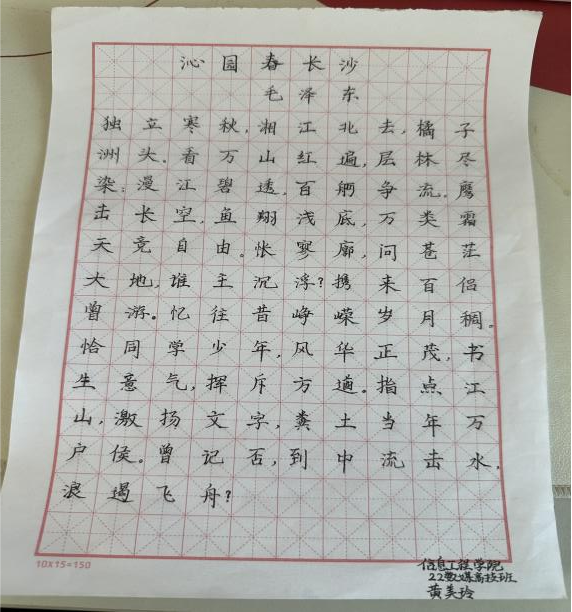 沁园春长沙
毛泽东
独立寒秋,湘江北去,橘子
洲头。看万山红遍,层林尽
染;漫江碧透,百舸争流。鹰
击长空,鱼翔浅底,万类霜
天竞自由。怅寥廓,问苍茫
大地,谁主沉浮?携来百侣
曾游。忆往昔峥嵘岁月稠。
恰同学少年,风华正茂,书
生意气,挥斥方遒。指点江
山,激扬文字,粪土当年万
户侯。曾记否,到中流击水,
浪遏飞舟?
10X15=150
信息工程学院
22数媒高技班
黄美玲